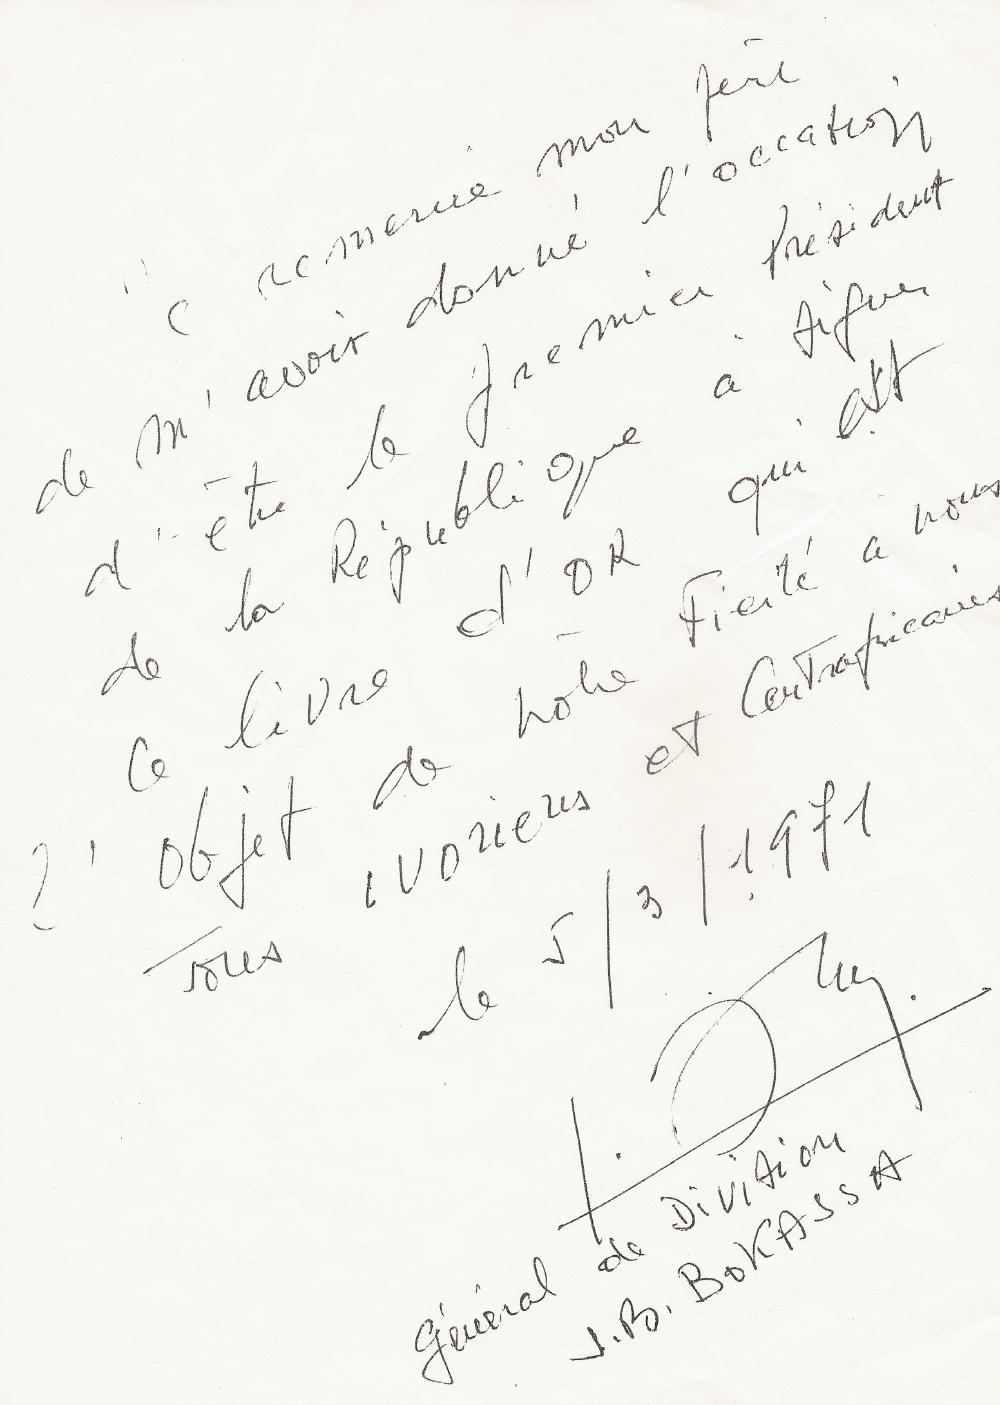 Je remercie mon père
de m'avoir donné l'occation
d'être le premier Président
de la République à signer
ce livre d'OR qui est
l'objet de notre Fierté a nous
tous ivoriens et Centrafricains
le 5/3/1971
général de Division
J.B. BOKASSA